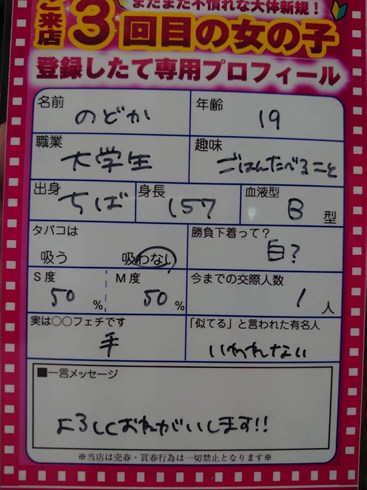 まだまだ不慣れな大体新規！
ご来店3回目の女の子
登録したて専用プロフィール
名前 のどか 年齢 19
職業 大学生 趣味 ごはんたべること
出身 ちば 身長 157 血液型 B 型
タバコは 吸う 吸わない 勝負下着って？ 白？
S度 50 % M度 50 % 今までの交際人数 1 人
実は○○フェチです 手 「似てる」と言われた有名人 いわれない
■一言メッセージ
よろしくおねがいします!!
※当店は売春・買春行為は一切禁止となります※